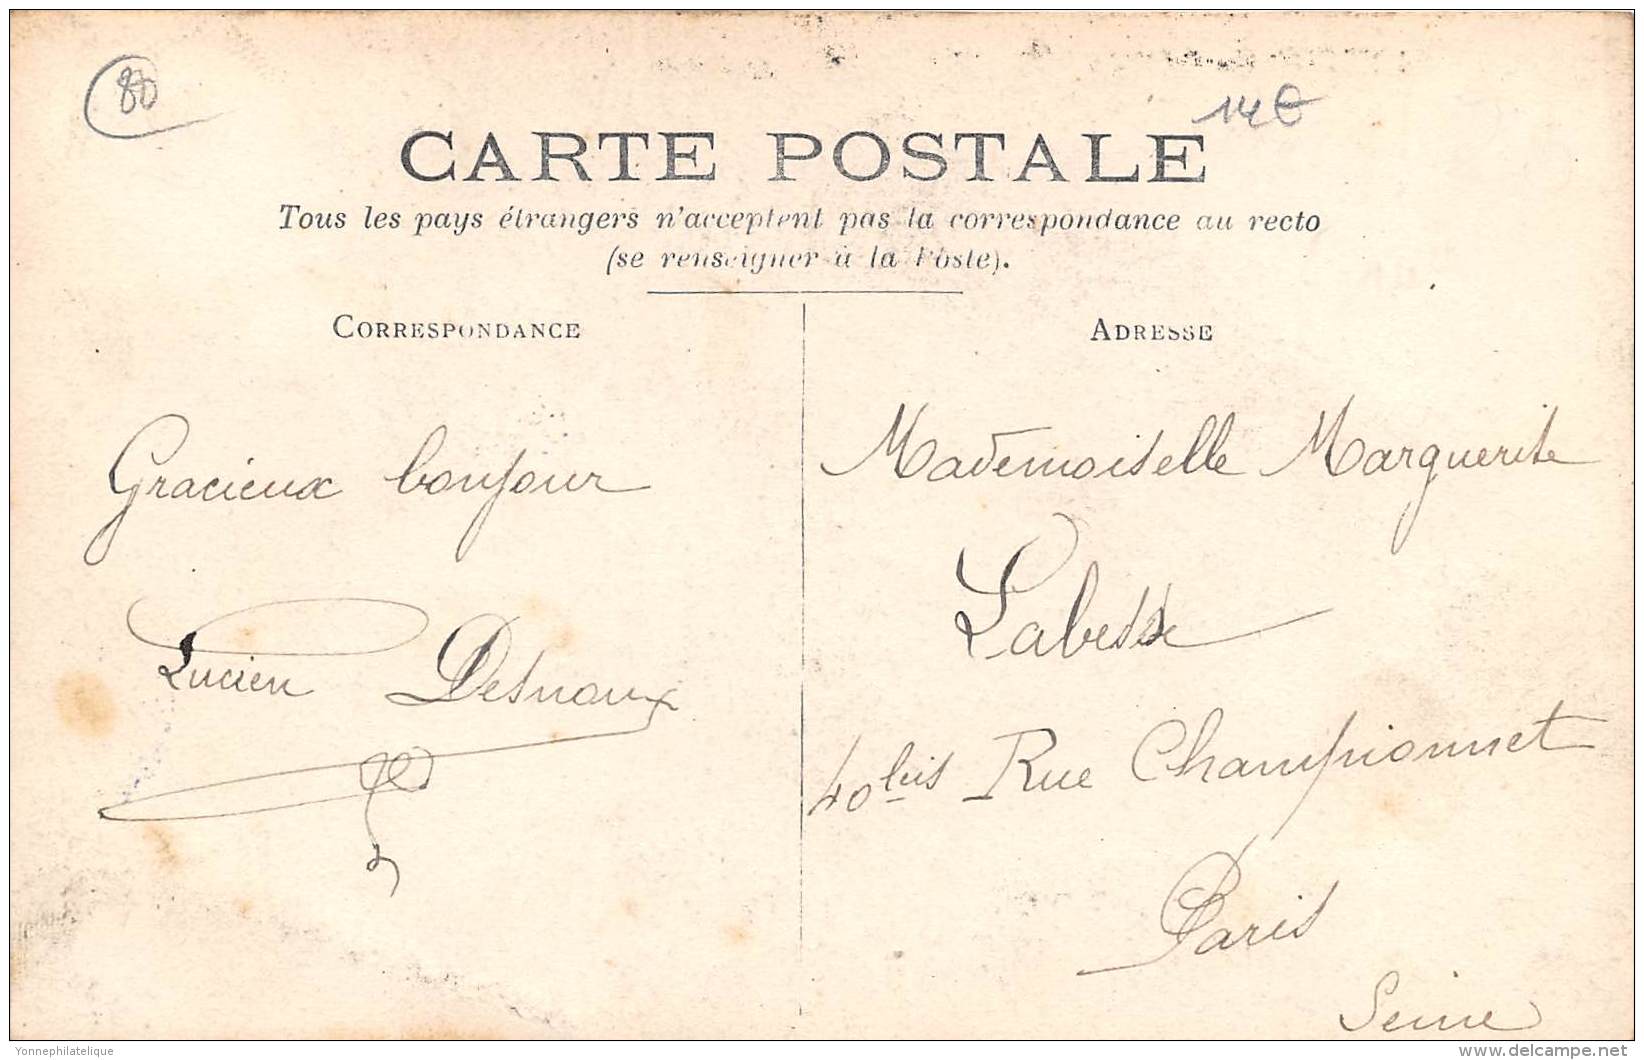 80
14€
CARTE POSTALE
Tous les pays étrangers n'acceptent pas la correspondance au recto
(se renseigner à la Poste).
CORRESPONDANCE
ADRESSE
Gracieux bonjour
Lucien Desnoux
Mademoiselle Marguerite
Labesse
40 bis Rue Championnet
Paris
Seine
Yonnephilatelique
delcampe.net